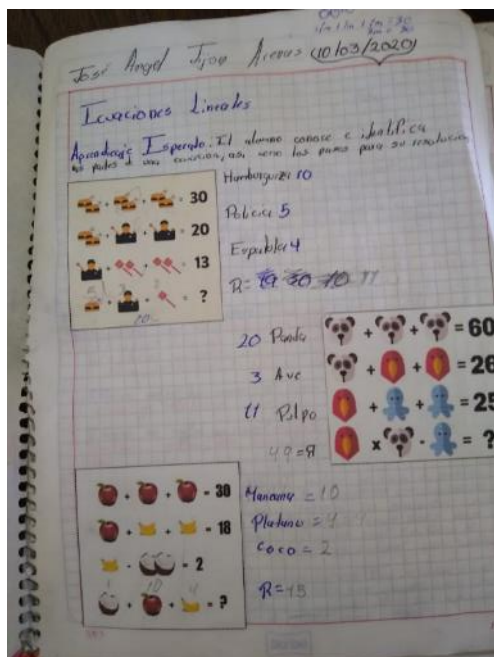 José Angel Tjom Arenas (10/03/2020)
Ecuaciones Lineales
Aprendizaje Esperado. El alumno conoce e identifica
las partes d una ecuacion, asi como los pasos para su resolucion
Hamburguesa 10
+ + = 30
Policia 5
+ + = 20
Espatula 4
+ + = 13
R=
+ + = ?
20 Panda
+ + = 60
3 Ave
+ + = 26
11 Pulpo
+ + = 25
49=R
x - = ?
+ + = 30
Manzana = 10
+ + = 18
Platano = 4
- = 2
coco = 2
+ + = ?
R=15